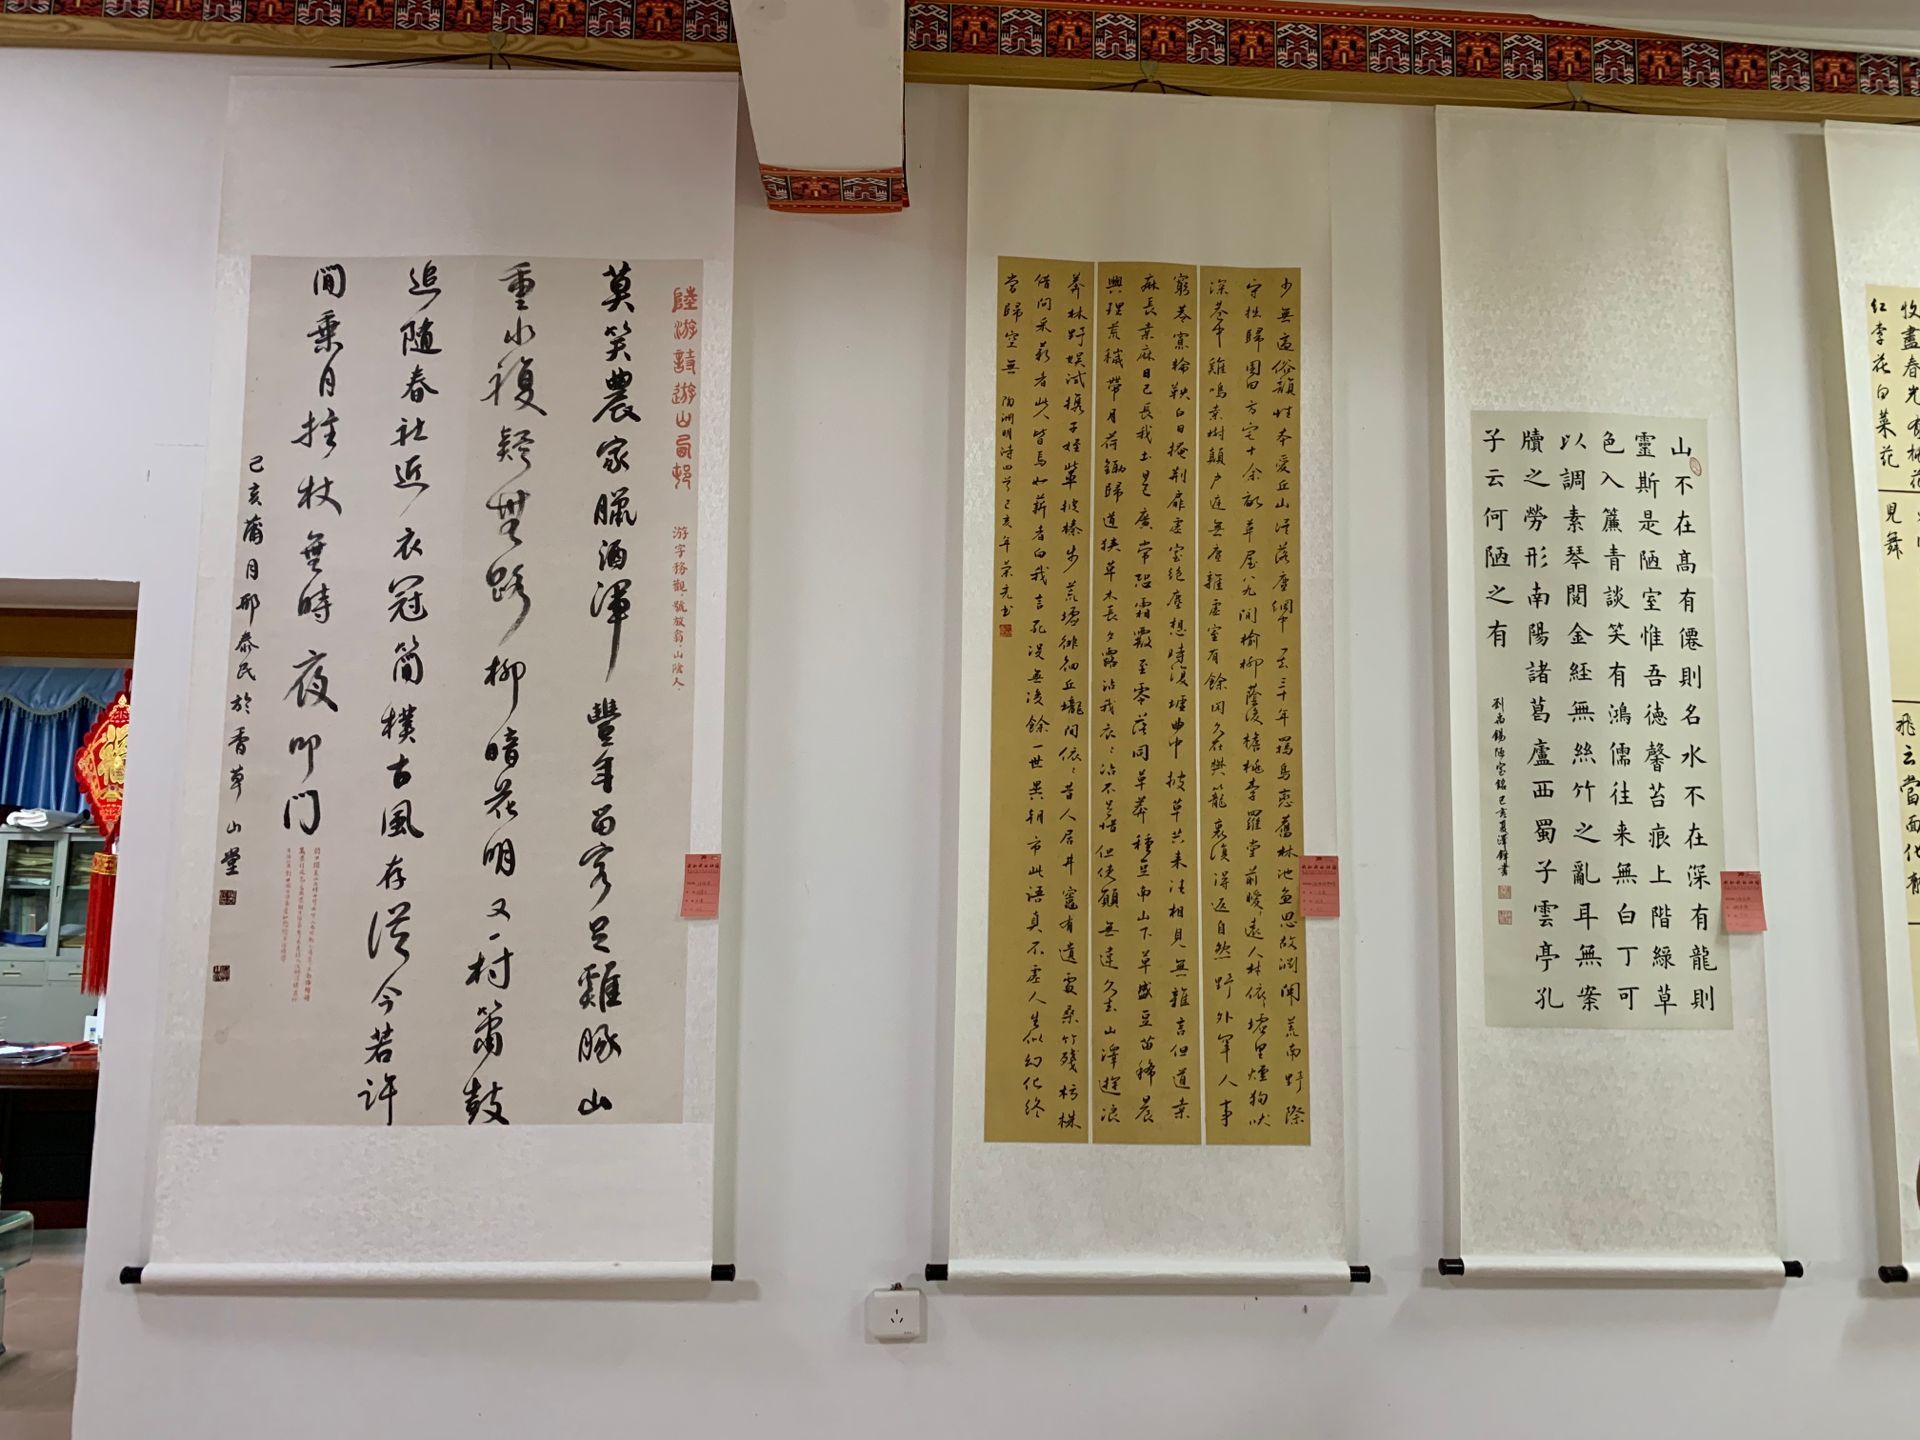 陸游詩遊山西邨
游字務觀，號放翁，山陰人。
莫笑農家臘酒渾豐年留客足雞豚山
重水複疑無路柳暗花明又一村簫鼓
追隨春社近衣冠簡樸古風存從今若許
閒乘月拄杖無時夜叩門
己亥蒲月邢泰民於香草山堂
少無適俗韻性本愛丘山誤落塵網中一去三十年羈鳥戀舊林池魚思故淵開荒南野際
守拙歸園田方宅十余畝草屋八九間榆柳蔭後簷桃李羅堂前曖曖遠人村依依墟里煙狗吠
深巷中雞鳴桑樹顛戶庭無塵雜虛室有餘閑久在樊籠裏復得返自然野外罕人事
窮巷寡輪鞅白日掩荊扉虛室絕塵想時復墟曲中披草共来往相見無雜言但道桑
麻長桑麻日已長我土已廣常恐霜霰至零落同草莽種豆南山下草盛豆苗稀晨
興理荒穢帶月荷鋤歸道狹草木長夕露沾我衣衣沾不足惜但使願無違久去山澤遊浪
莽林野娛試攜子姪輩披榛步荒墟徘徊丘壠間依依昔人居井竈有遺處桑竹殘朽株
借問采薪者此人皆焉如薪者向我言死沒無復餘一世異朝市此語真不虛人生似幻化終
當歸空無 陶淵明詩四首己亥年榮元书
山不在高有僊則名水不在深有龍則
靈斯是陋室惟吾德馨苔痕上階綠草
色入簾青談笑有鴻儒往来無白丁可
以調素琴閱金経無絲竹之亂耳無案
牘之勞形南陽諸葛廬西蜀子雲亭孔
子云何陋之有
劉禹錫陋室銘己亥夏澤鋒書
收盡春光
紅李花白菜花
見舞
飛云當面化